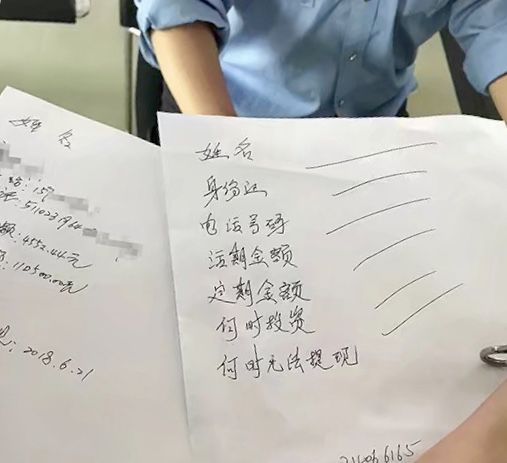 姓名
159
511023196
额:4552.44元
110500.00元
2018.6.21
姓名
身份证
电话号码
活期金额
定期金额
何时投资
何时无法提现